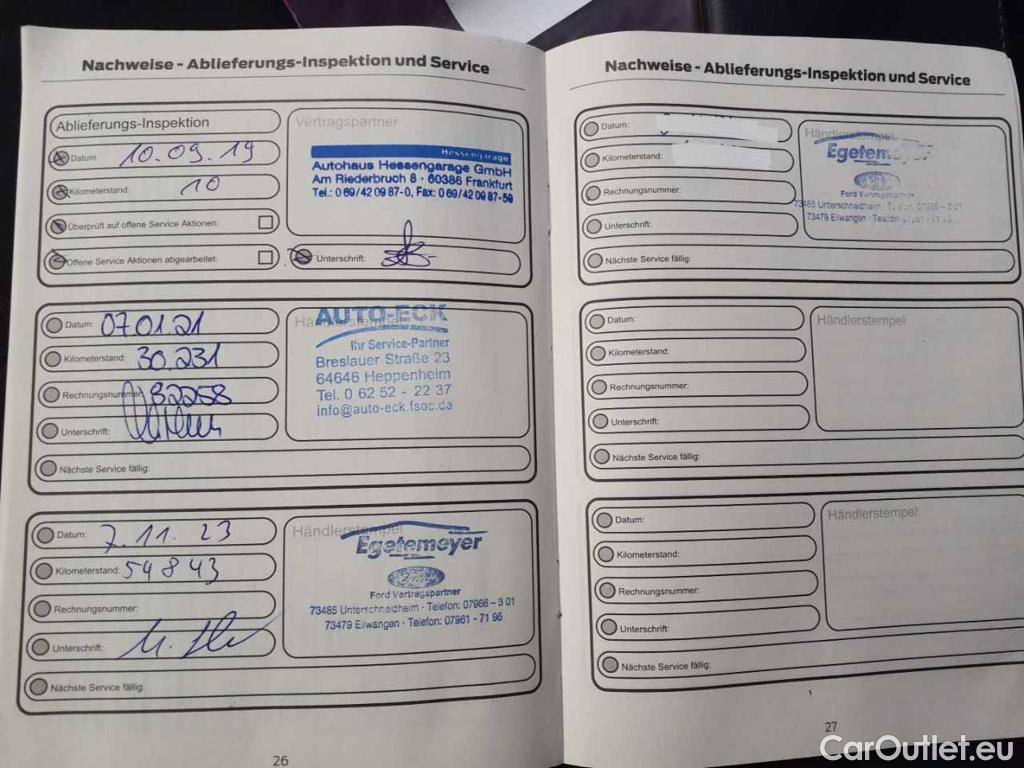 Nachweise - Ablieferungs-Inspektion und Service
Ablieferungs-Inspektion
Datum: 10.09.19
Kilometerstand: 10
Überprüft auf offene Service Aktionen:
Offene Service Aktionen abgearbeitet:
Vertragspartner
Hessengarage
Autohaus Hessengarage GmbH
Am Riederbruch 8 · 60386 Frankfurt
Tel.: 0 69/42 09 87-0, Fax: 0 69/42 09 87-59
Unterschrift:
Datum: 07.01.21
Kilometerstand: 30.231
Rechnungsnummer: 82258
Unterschrift:
Nächste Service fällig:
Händlerstempel
AUTO-ECK
Ihr Service-Partner
Breslauer Straße 23
64646 Heppenheim
Tel. 0 62 52 - 22 37
info@auto-eck.fsoc.de
Datum: 7.11.23
Kilometerstand: 54843
Rechnungsnummer:
Unterschrift:
Nächste Service fällig:
Händlerstempel
Egetemeyer
Ford Vertragspartner
73485 Unterschneidheim · Telefon: 07966 – 3 01
73479 Ellwangen · Telefon: 07961 - 71 96
26
Nachweise - Ablieferungs-Inspektion und Service
Datum:
Kilometerstand:
Rechnungsnummer:
Unterschrift:
Nächste Service fällig:
Händlerstempel
Egetemeyer
Ford Vertragspartner
73485 Unterschneidheim · Telefon: 07966 – 3 01
73479 Ellwangen · Telefon:
Datum:
Kilometerstand:
Rechnungsnummer:
Unterschrift:
Nächste Service fällig:
Händlerstempel
Datum:
Kilometerstand:
Rechnungsnummer:
Unterschrift:
Nächste Service fällig:
Händlerstempel
27
CarOutlet.eu